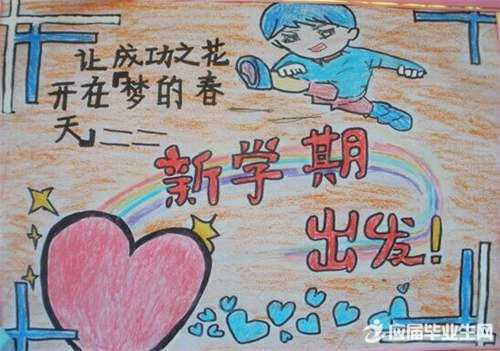 让成功之花
开在『梦的春
天』——
新学期
出发！
应届毕业生网